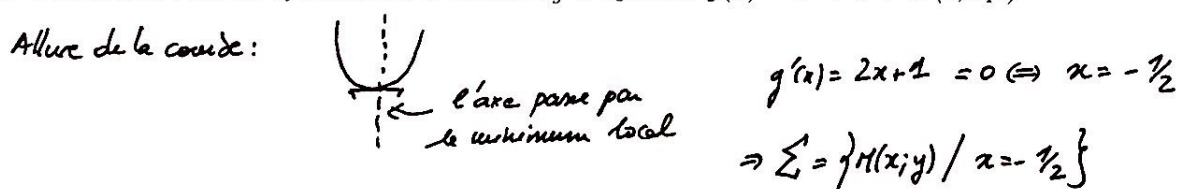 Allure de la courbe :
l'axe passe par
le minimum local
g'(x) = 2x+1 = 0 ⇔ x = - 1/2
⇒ Σ = {M(x;y) / x = - 1/2}